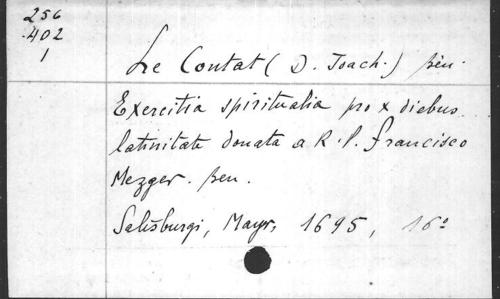 256
402
1
Le Contat (D. Joach.) bén.
Exercitia spiritualia pro x diebus
latinitate donata a R. P. Francisco
Mezger. ben.
Salisburgi, Mayr, 1695, 16º